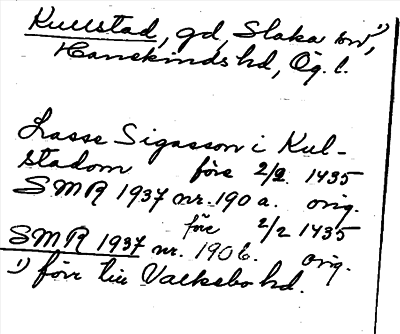 Kullstad, gd, Slaka sn¹⁾,
Hanekinds hd, Ög. l.
Lasse Sigasson i Kul-
stadom före 2/2 1435
SMR 1937 nr. 190 a. orig.
före 2/2 1435
SMR 1937 nr. 190 b. orig.
¹⁾ förr till Valkebo hd.